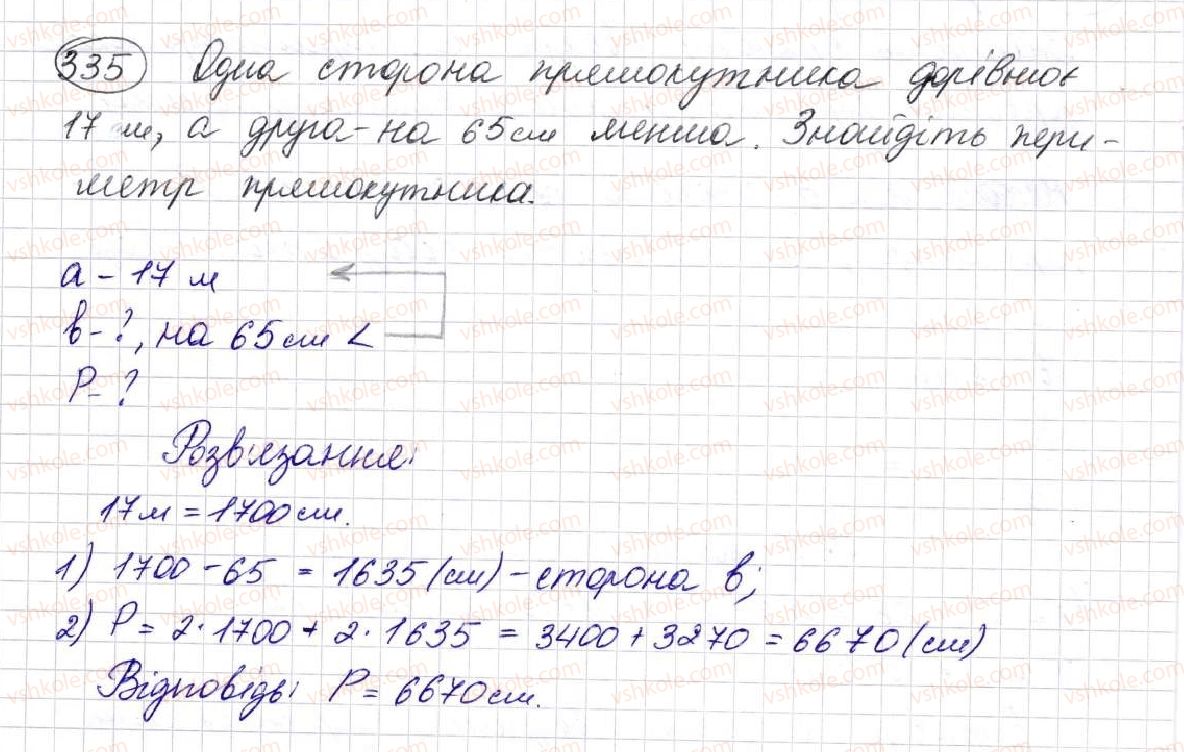 335 Одна сторона прямокутника дорівнює
17 м, а друга - на 65 см менша. Знайдіть пери-
метр прямокутника.
a - 17 м
b - ?, на 65 см <
P - ?
Розв'язання:
17 м = 1700 см.
1) 1700 - 65 = 1635 (см) - сторона b;
2) P = 2 · 1700 + 2 · 1635 = 3400 + 3270 = 6670 (см)
Відповідь: P = 6670 см.
vshkole.com